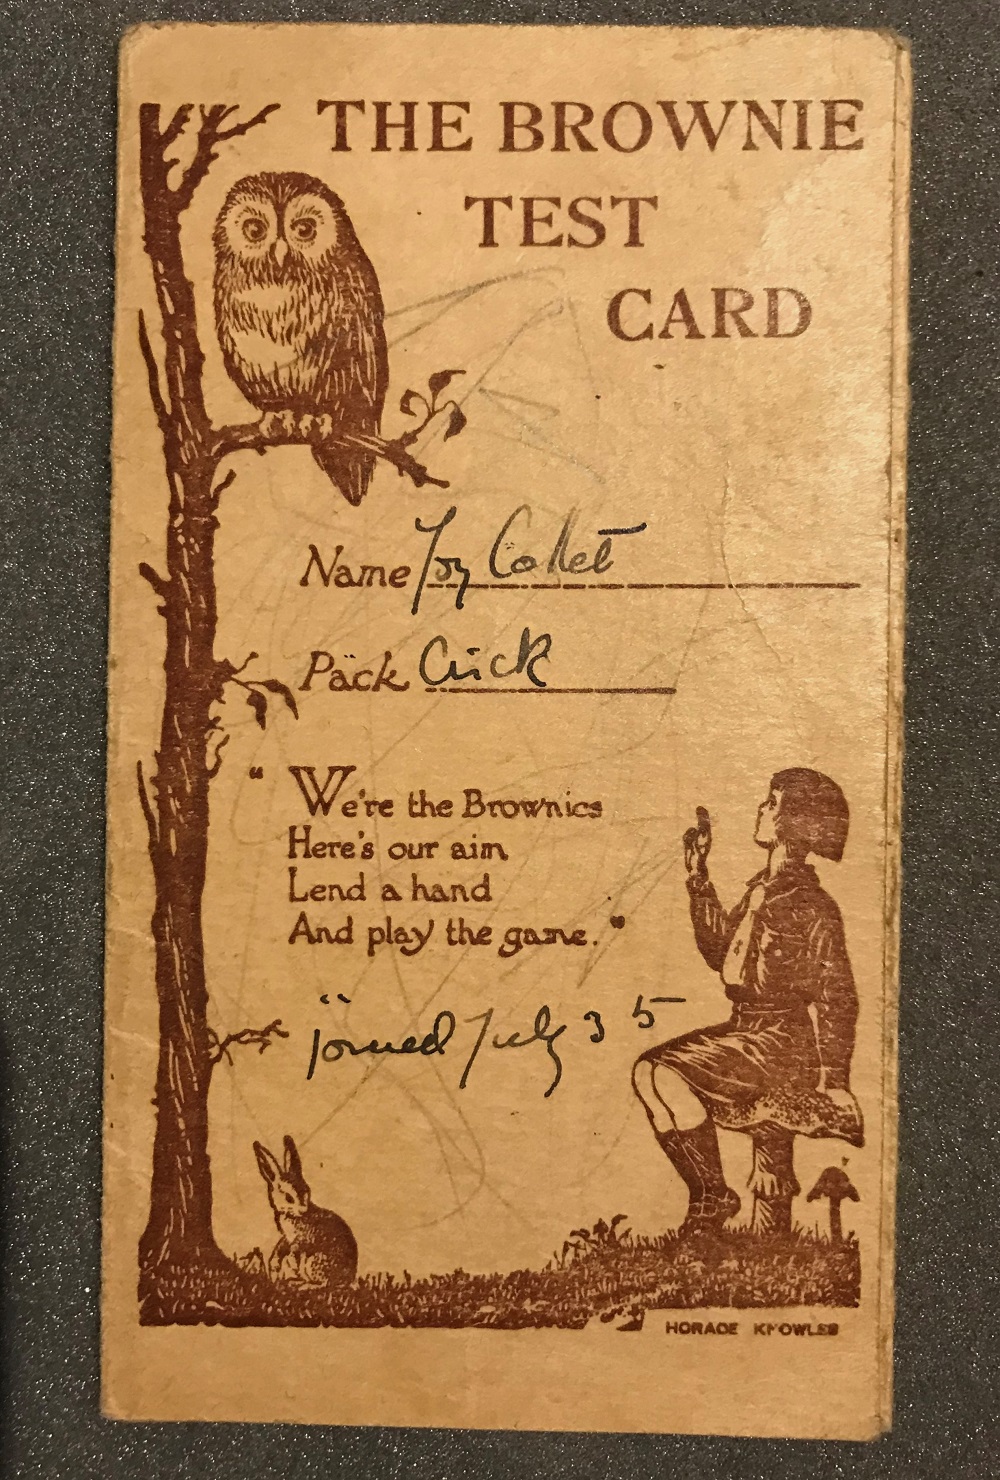 THE BROWNIE
TEST
CARD
Name Joy Collet
Pack Crick
"We're the Brownies
Here's our aim
Lend a hand
And play the game."
joined July 35
HORACE KNOWLES